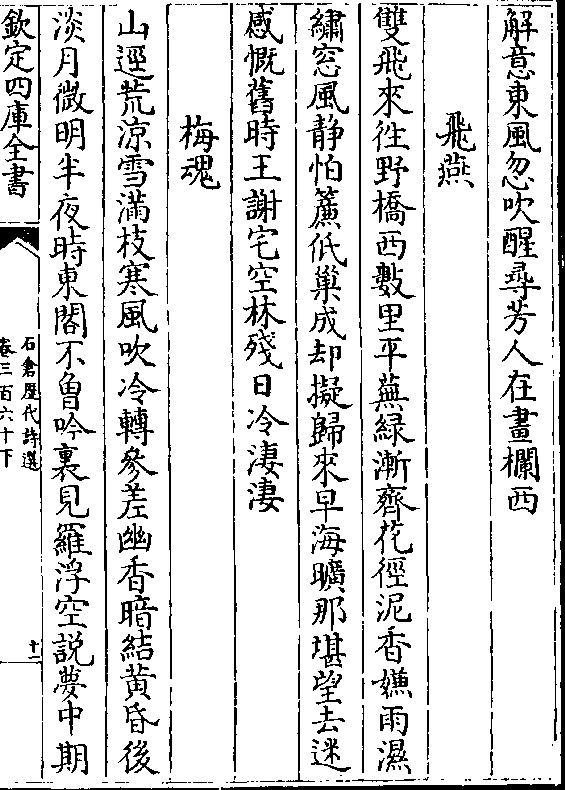 解意東風忽吹醒尋芳人在畫欄西
飛燕
雙飛來往野橋西數里平蕪緑漸齊花徑泥香嫌雨濕
繡窓風静怕簾低巢成却擬歸來早海曠那堪望去迷
感慨舊時王謝宅空林殘日冷淒淒
梅魂
山逕荒凉雪滿枝寒風吹冷轉參差幽香暗結黄昏後
淡月微明半夜時東閣不曾吟裏見羅浮空説夢中期
欽定四庫全書
石倉歷代詩選
卷三百六十下
十一